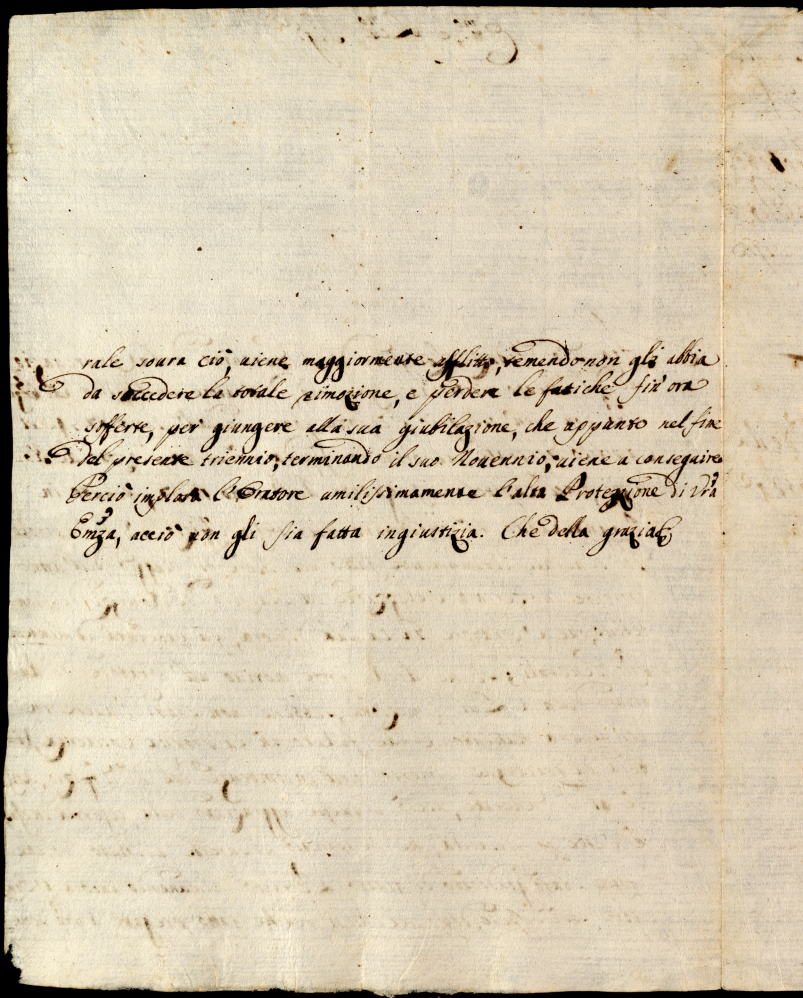 rale soura ciò, uiene maggiormente afflitto, temendo non gli abbia
da succedere la totale rimozione, e perdere le fatiche fin'ora
sofferte, per giungere alla sua giubilazione, che appunto nel fine
del presente triennio, terminando il suo Nouennio, uiene a conseguire
Perciò implora l'Oratore umilissimamente l'alta Protezzione di Vrã
Emza, acciò non gli sia fatta ingiustizia. Che della grazia &